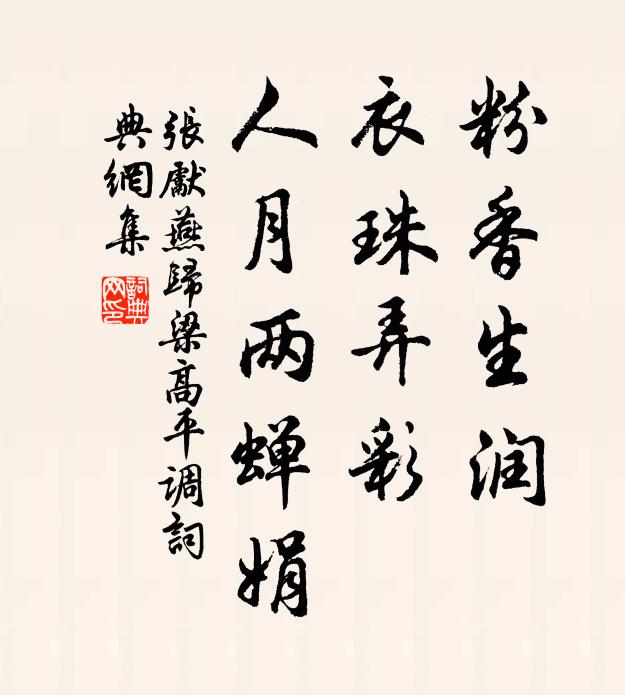 粉香生润
衣珠弄彩
人月两蝉娟
張獻燕歸梁高平调詞
典網集
詞典
网印